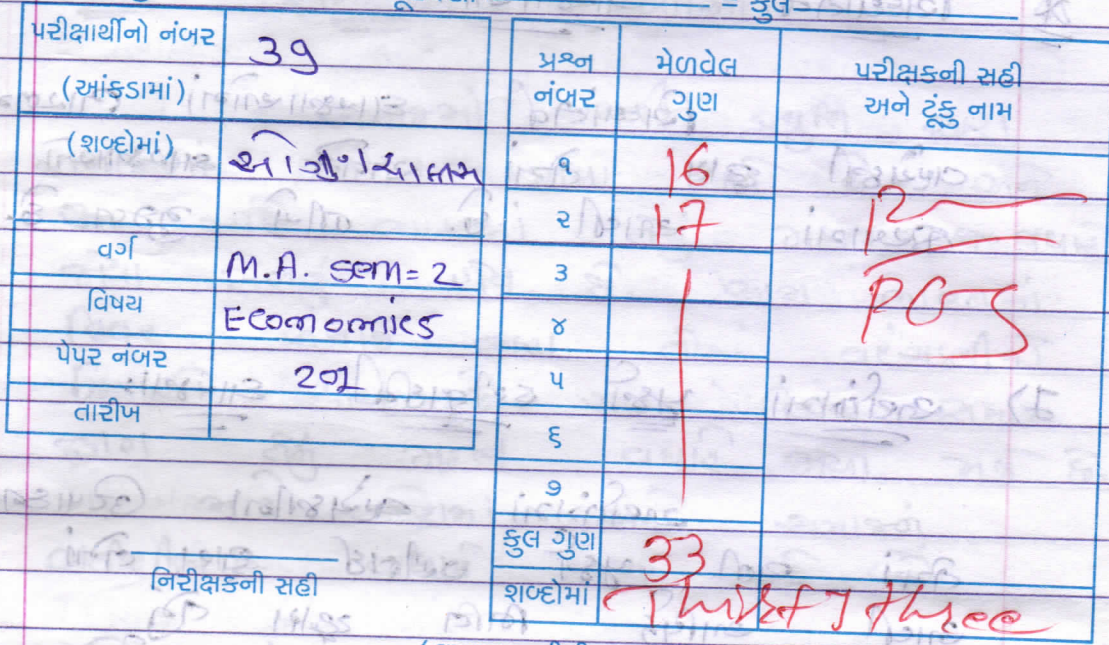 કુલ
પરીક્ષાર્થીનો નંબર 39
(આંકડામાં)
(શબ્દોમાં) ઓગણચાલીસ
વર્ગ M.A. sem=2
વિષય Economics
પેપર નંબર 201
તારીખ
નિરીક્ષકની સહી
પ્રશ્ન નંબર મેળવેલ ગુણ પરીક્ષકની સહી અને ટૂંકુ નામ
૧ 16
૨ 17
૩
૪
૫
૬
૭
કુલ ગુણ 33
શબ્દોમાં Thirty three